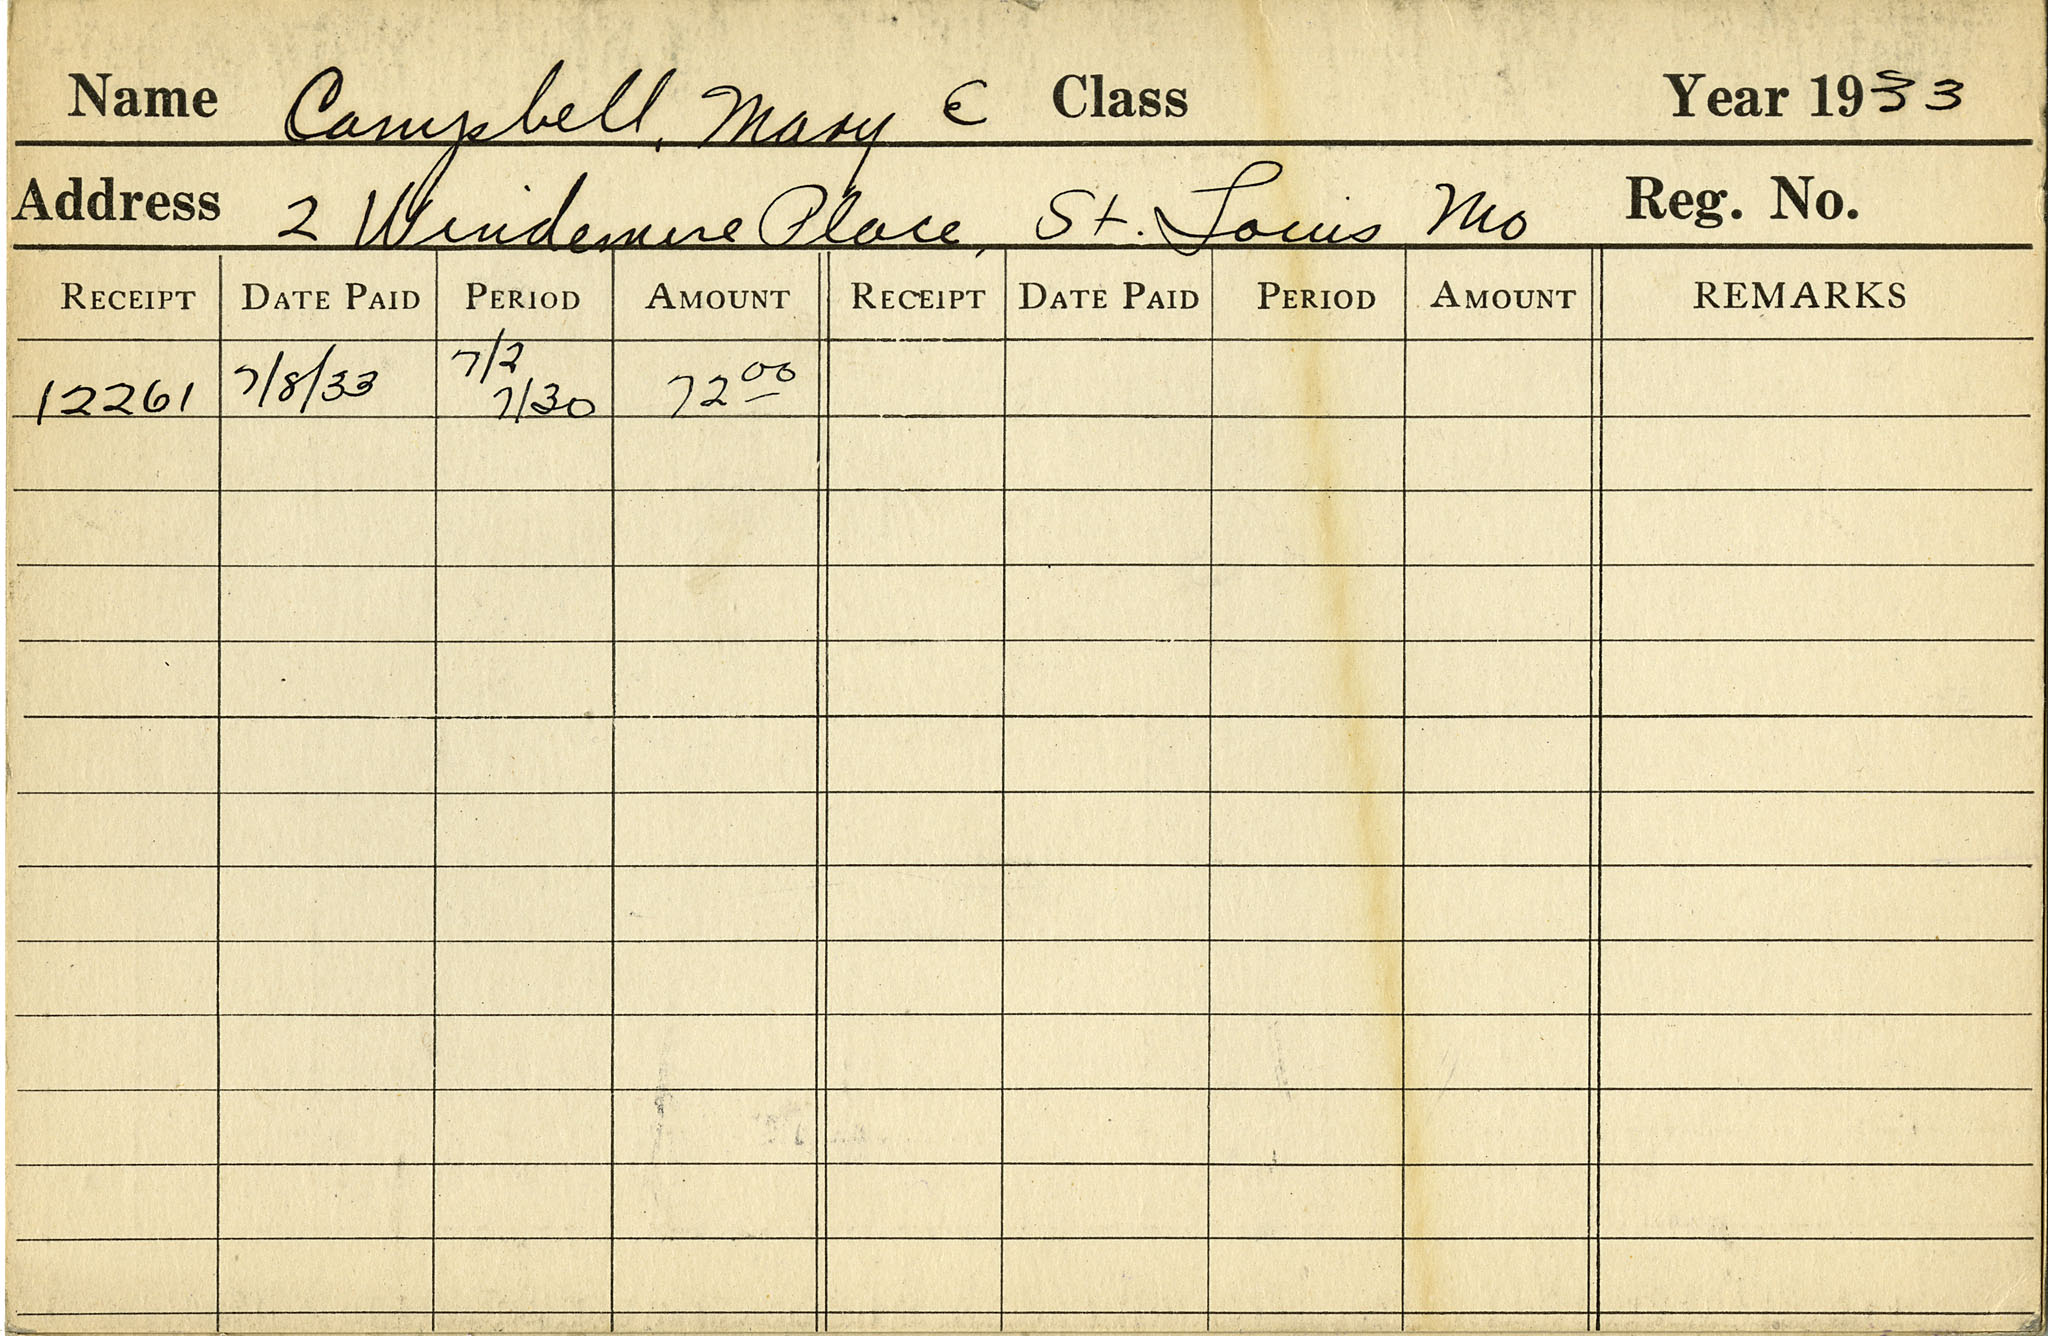 Name Campbell, Mary E Class Year 1933
Address 2 Windemere Place, St. Louis Mo Reg. No.
RECEIPT DATE PAID PERIOD AMOUNT RECEIPT DATE PAID PERIOD AMOUNT REMARKS
12261 7/8/33 7/2 7/30 72 00